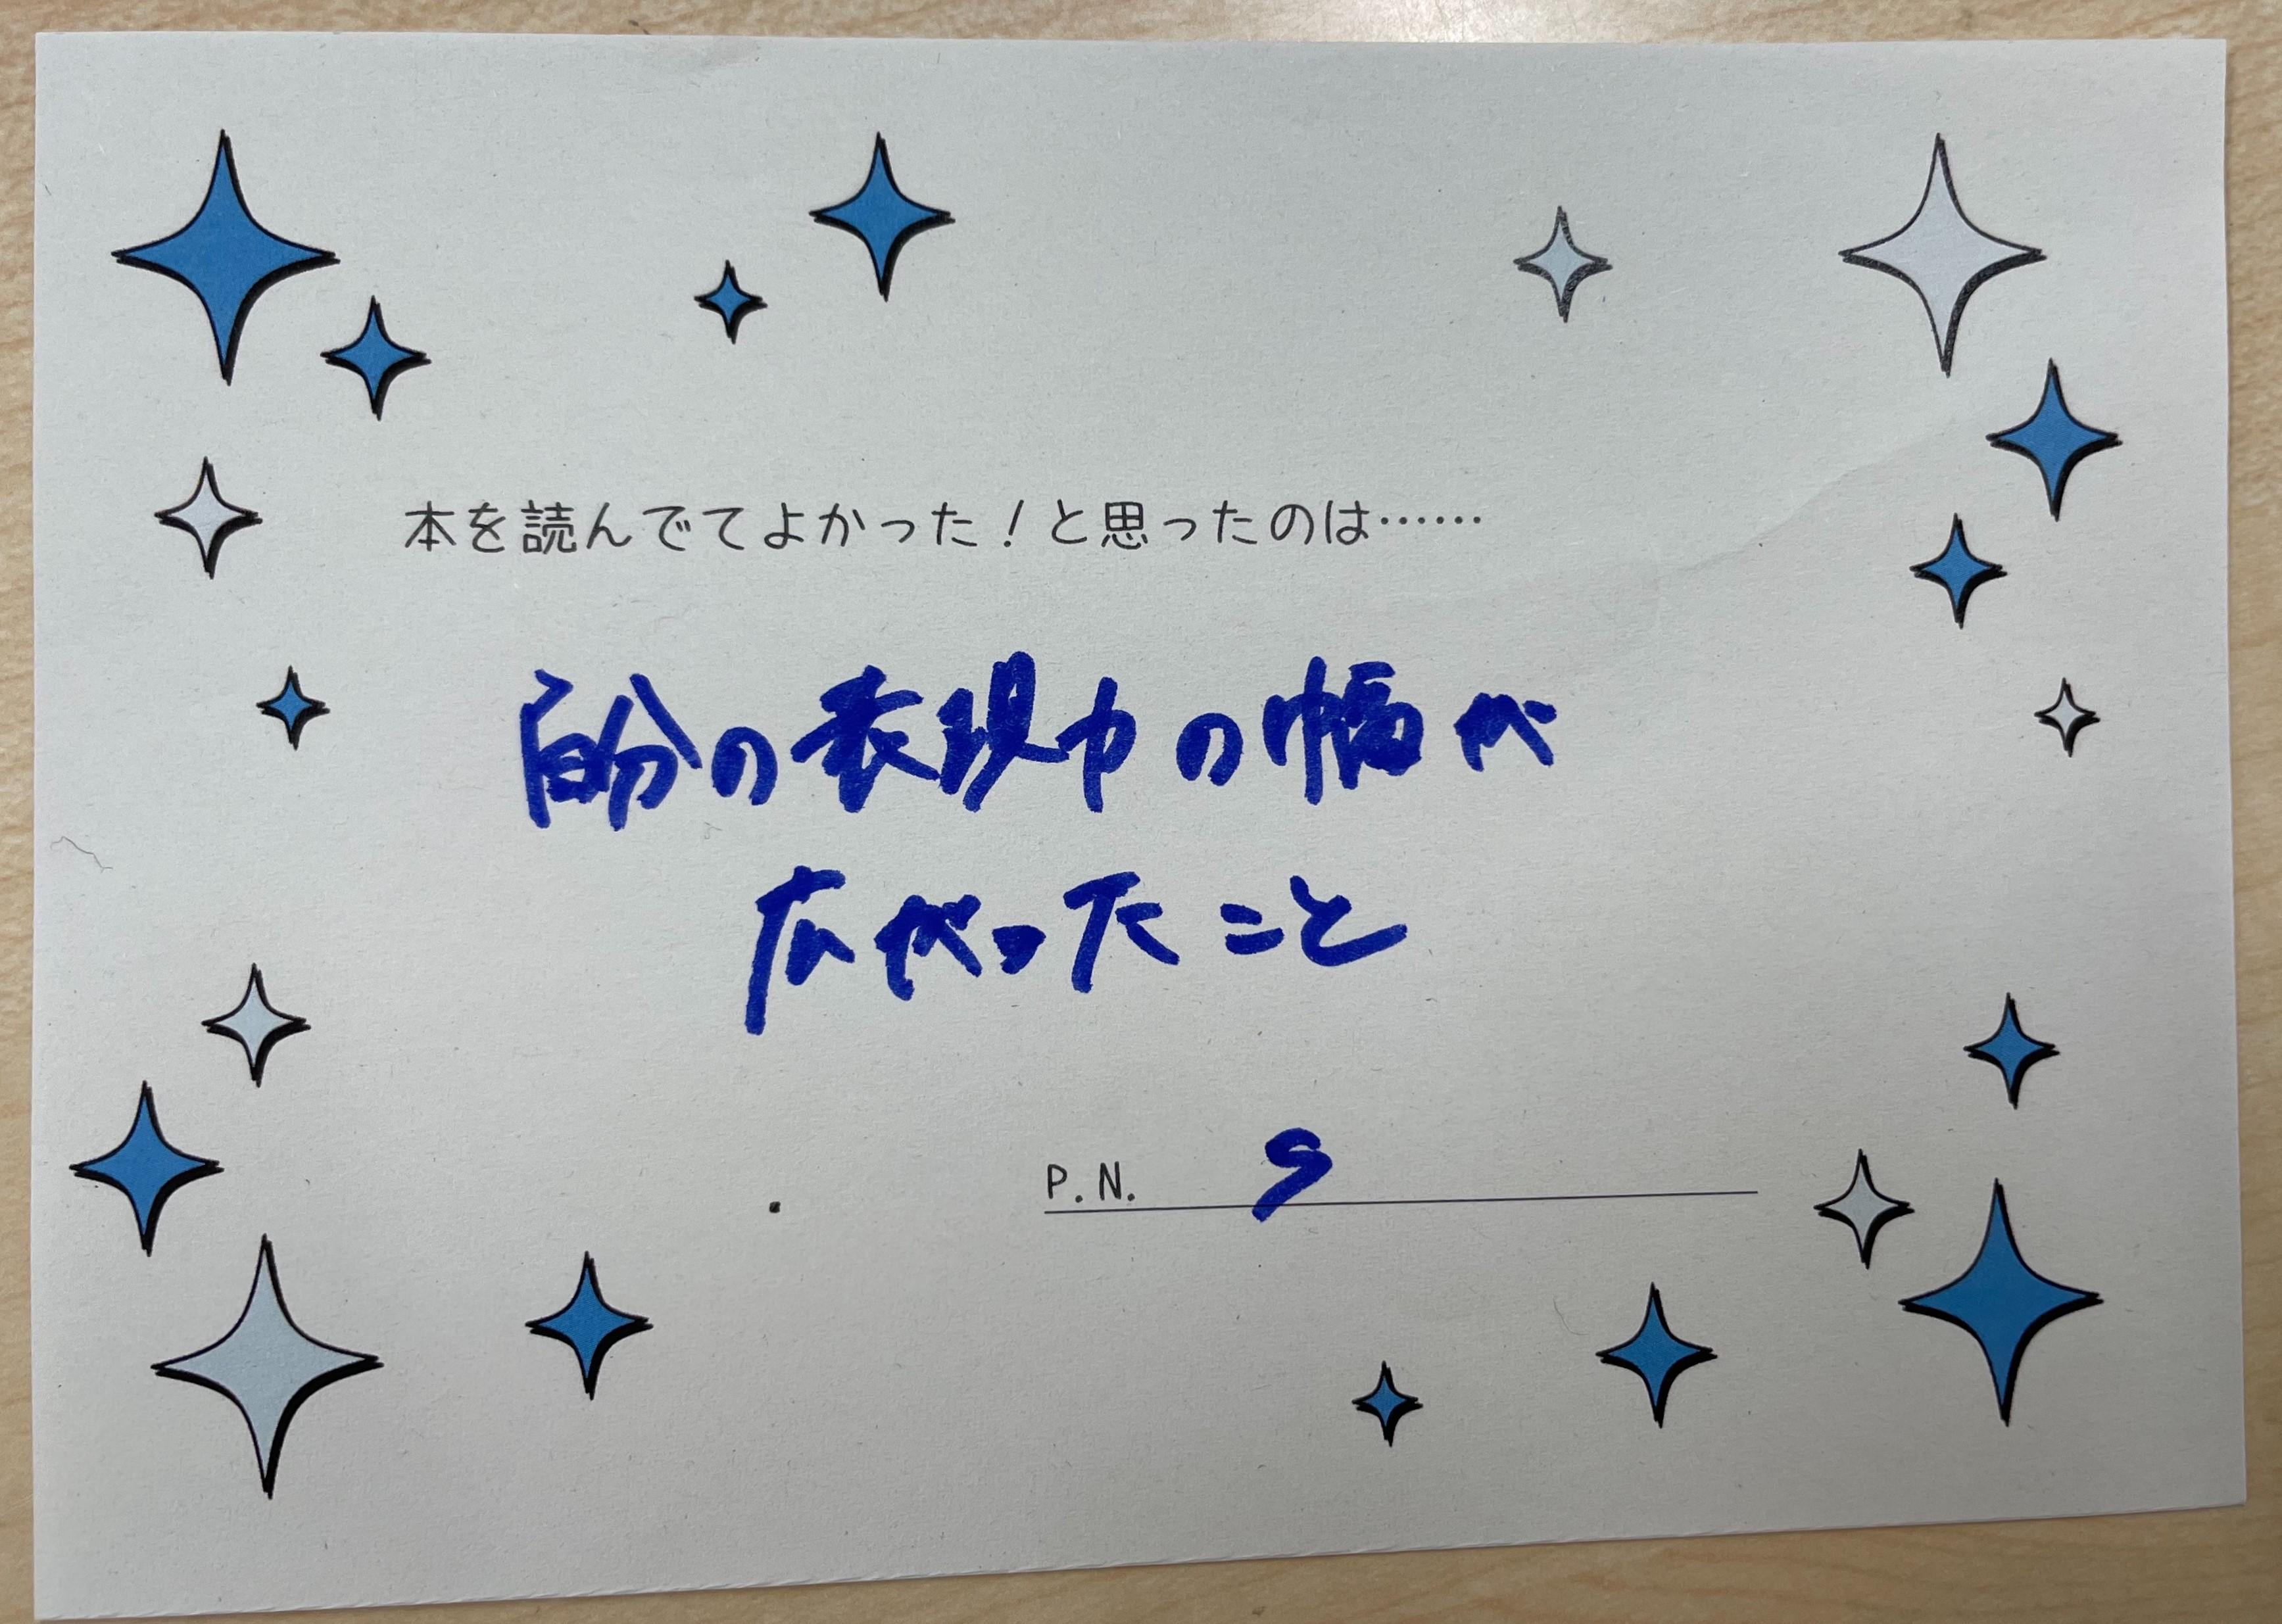 本を読んでてよかった！と思ったのは……
自分の表現力の幅が
広がったこと
P.N. S